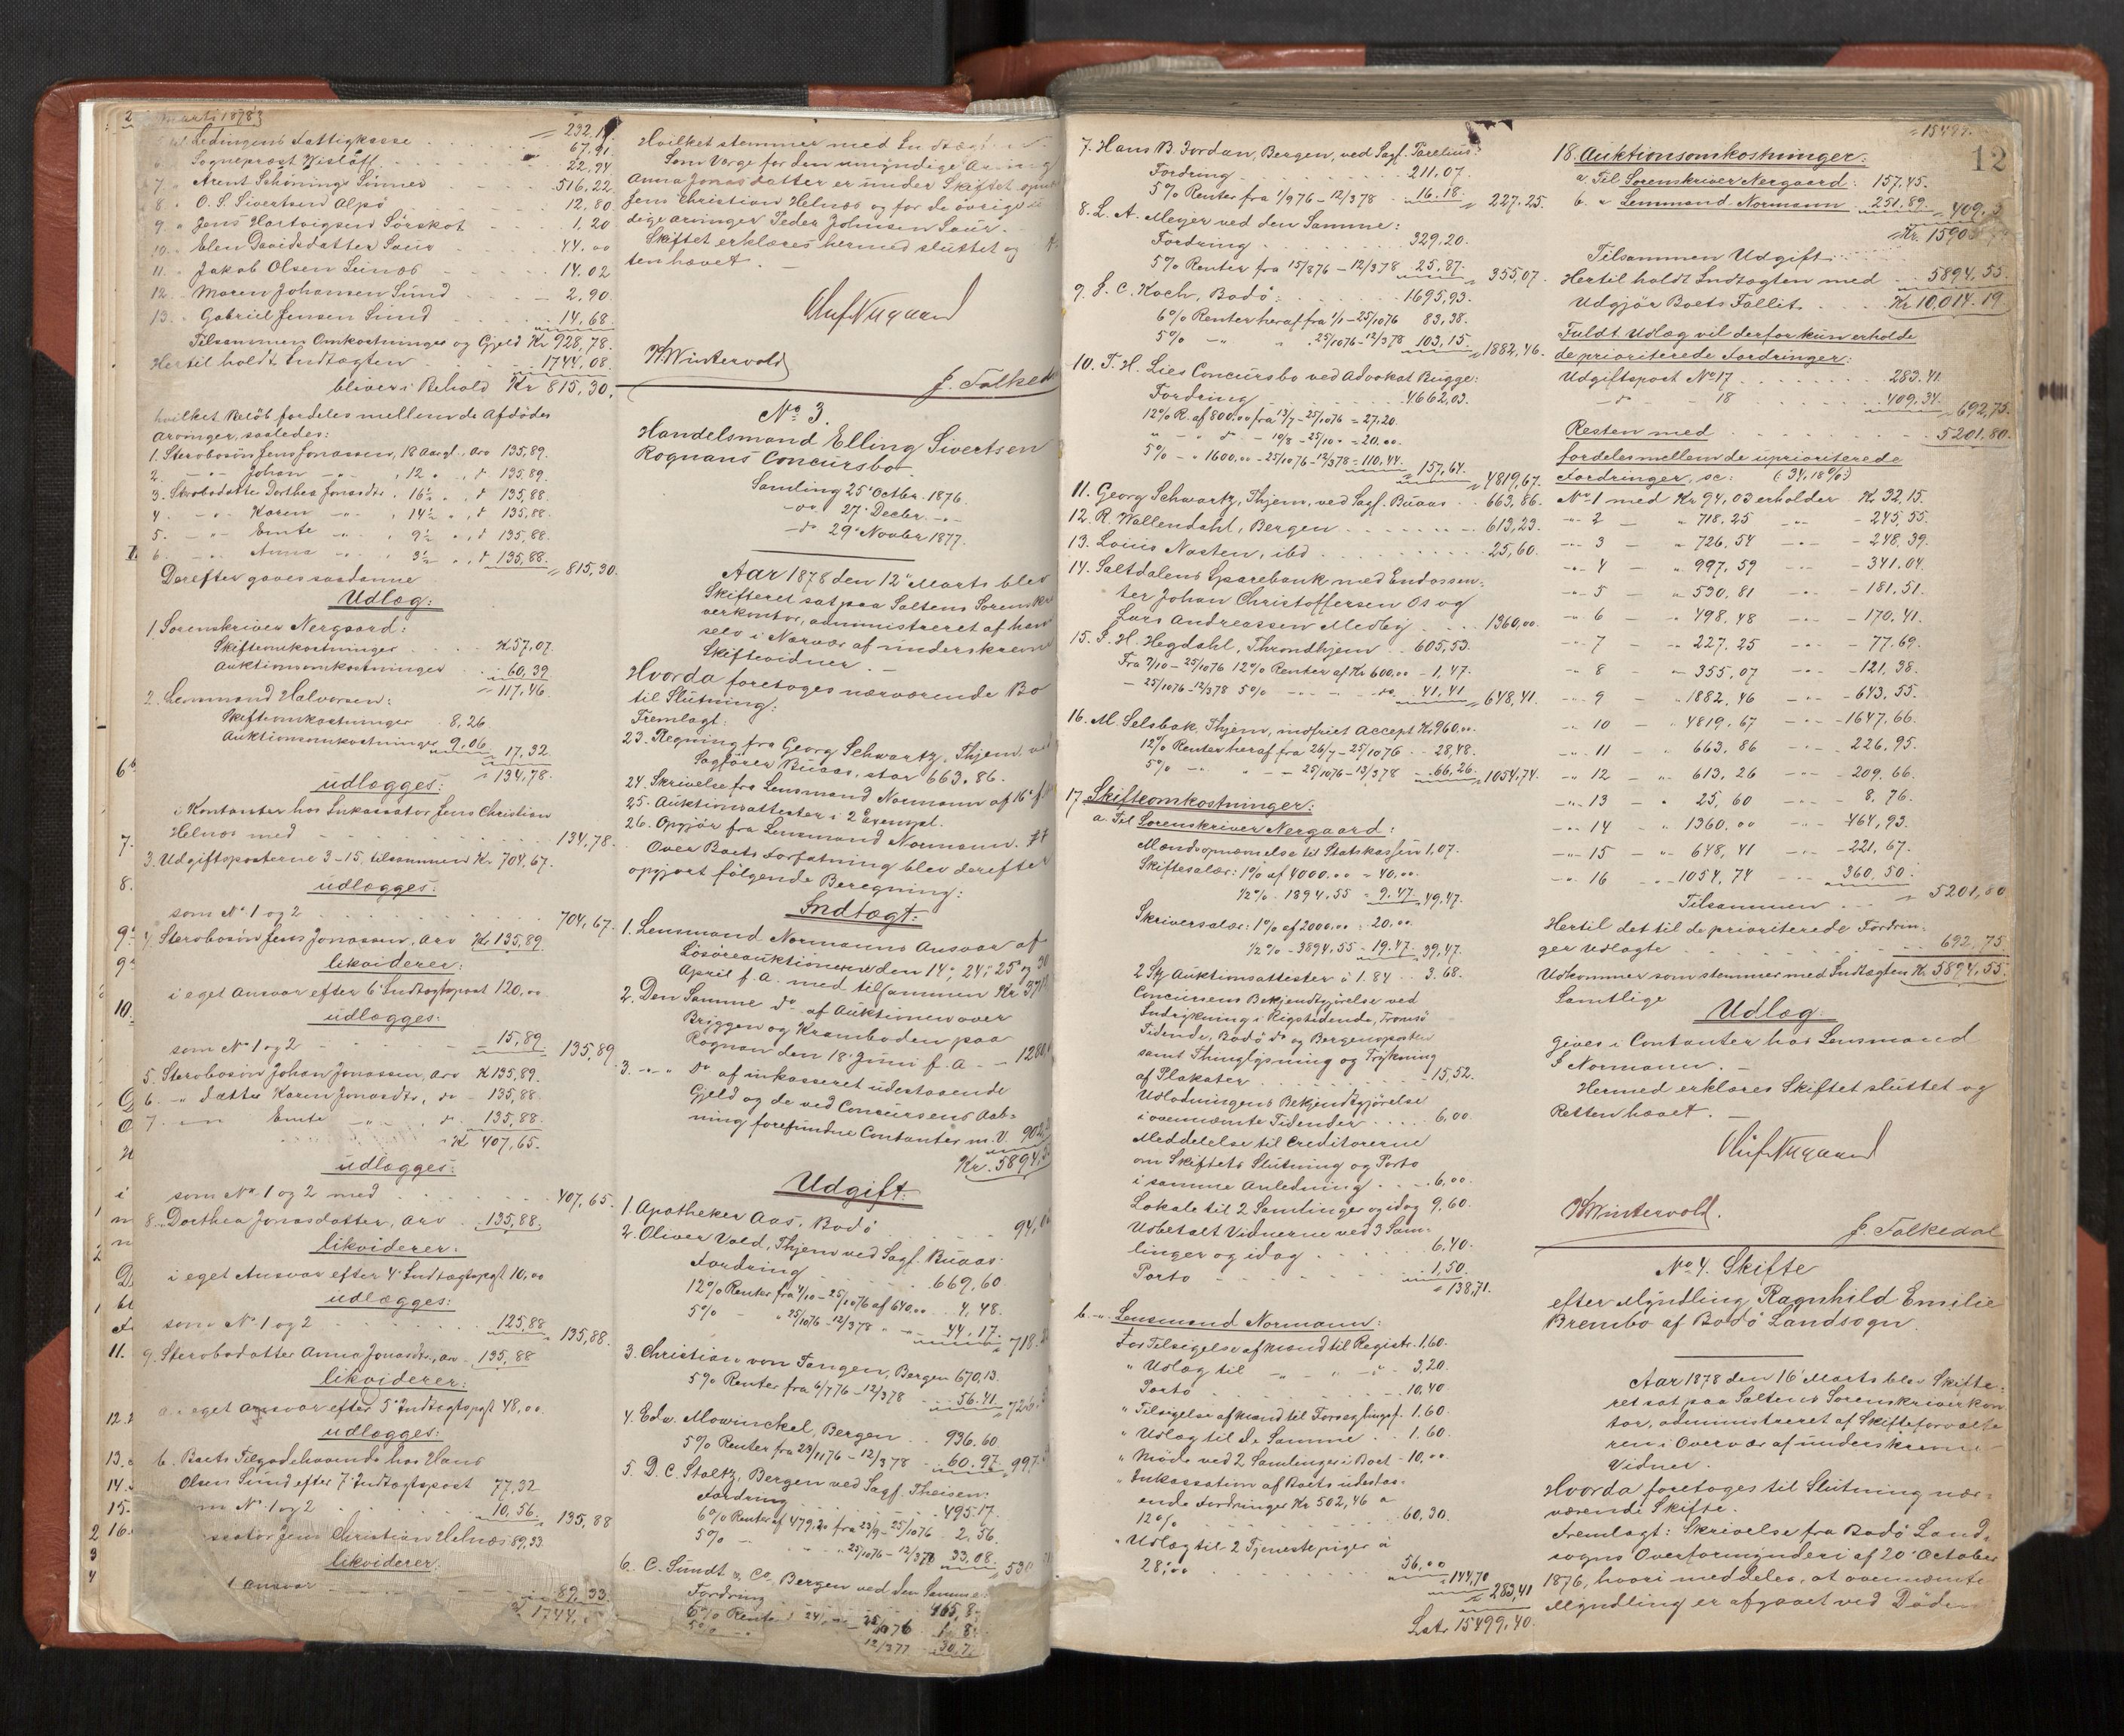 Marts 1878
Ledingens Fattigkasse 232,11.
6. Sogneprest Wisløff 67,91.
7. Arent Schönings Sönner 22,94
8 " O. S. Sivertsen Alpö 516,22
9 " Jens Hartvigsen Sörskot 12,80
10. Elen Davidsdatter Saur 1,20
11. Jakob Olsen Lünos 44.00
12. Maren Johansen Sund 14.02
13. Gabriel Jensen Sund 2,90.
14,68.
Tilsammen Omkostninger og Gjeld Kr 928,78.
Hertil holdt Indtægten 1744,08.
bliver i Behold Kr 815,30.
hvilket Beløb fordeles mellem de Afdødes
Arvinger, saaledes:
1. Sterbosön Jens Jonassen, 18 Aar gl. Arv 135,89.
2. - " - Johan - " - , 12 " , d 135,89.
3. Sterbodatter Dorthea Jonasdtr. , 16½ " , d 135,88.
4. - " - Karen - " - , 14½ " , d 135,88.
5. - " - Emte - " - , 9½ " , d 135,88.
6. - " - Anna - " - , 3½ " , d 135,88.
" 815,30.
Derefter gaves saadanne
Udlæg:
1. Sorenskriver Nergaard:
Skifteomkostninger K 57,07.
Auktionsomkostninger 60,39
" 117,46.
2. Lensmand Halvorsen:
Skifteomkostninger 8,26
Auktionsomkostninger 9,06
" 17,32
" 134,78.
udlægges:
i Kontanter hos Inkassator Jens Christian
Helnæs med 134,78.
3. Udgiftsposterne 3-15, tilsammen Kr 704,67.
udlægges:
som No 1 og 2 704,67.
4. Sterbosön Jens Jonassen, Arv Kr 135,89.
likviderer:
i eget Ansvar efter 6' Indtægtspost 120,00
udlægges:
som No 1 og 2 15,89.
135,89
5. Sterbosön Johan Jonassen, Arv K 135,89.
6. - " datter Karen Jonasdtr., do - 135,88.
7. - " - Emte - " - do 135,88.
" Kr 407,65.
udlægges:
som No 1 og 2 med 407,65.
8. Dorthea Jonasdatter, Arv 135,88.
likviderer:
i eget Ansvar efter 4' Indtægtspost 10,00
udlægges:
som No 1 og 2 125,88
135,88.
9. Sterbodatter Anna Jonasdtr., Arv 135,88
likviderer:
a. i eget Ansvar efter 5' Indtægtspost 48,00.
udlægges:
b. Boets Tilgodehavende hos Hans
Olsen Sund efter 7' Indtægtspost 77,32
som No 1 og 2 10,56.
135,88
Inkassator Jens Christian Helnæs 89,33.
likviderer:
i Ansvar 89,33.
K 1744,
Hvilket stemmer med Indtægten.
Som Værge for den umyndige Arving
Anna Jonasdatter er under Skiftet opnævnt
Jens Christian Helnæs og for de øvrige
dige Arvinger Peder Johnsen Saur.
Skiftet erklæres hermed sluttet og
ten hævet.
Oluf Nergaard
K. Wintervold
J. Falkedal
No 3.
Handelsmand Elling Sivertsen
Rognans Concursbo
Samling 25' Octbr. 1876.
-do- 27' Decbr. - " -
-do 29' Novbr 1877.
Aar 1878 den 12' Marts blev
Skifteret sat paa Saltens Sorenskri
verkontor, administreret af ham
selv i Nærvær af underskrevne
Skiftevidner. -
Hvorda foretoges nærværende Bo
til Slutning:
Fremlagt:
23. Regning fra Georg Schwartz, Thjem, ved
Sagfører Buaas, stor 663.86.
24. Skrivelse fra Lensmand Normann af 16' f.
25. Auktionsattester i 2 Exempl.
26. Opgjør fra Lensmand Normann.
Over Boets Forfatning blev derefter
opgjort følgende Beregning:
Indtægt:
1. Lensmand Normanns Ansvar af
Lösöreauktionerne den 14', 24', 25' og 30
April f. A. med tilsammen Kr 371
2. Den Samme do af Auktionen over
Bryggen og Kramboden paa
Rognan den 18' Juni f. A. - 1280,
3. - " - Do af inkasseret udestaaende
Gjeld og de ved Concursens Aab-
ning forefundne Contanter m. V. 902,
Kr. 5894,55
Udgift:
1. Apotheker Aas, Bodö 94,0
2. Oliver Vold, Thjem ved Sagf. Buaas:
Fordring 669,60.
12% Renter fra 4/10 - 25/1076 af 640,00 4,48.
5% " 25/1076 - 12/378 " - " 44,17.
" 718,2
3. Christian von Tangen, Bergen 670,13.
5% Renter fra 6/776 - 12/378 56.41.
" 726,5
4. Edv. Mowinckel, Bergen 936.60
5% Renter fra 23/1176 - 12/378 60.97.
997.
5. D. C. Stoltz, Bergen ved Sagf. Theisen:
Fordring 495.17.
6% Renter af 479,20 fra 23/9 - 25/1076 2,56.
5% - " 25/1076 - 12/378 33,08.
530
6. C. Sundt & Co, Bergen ved den Samme:
Fordring 465,8
6% Rente 24, 25/1076 1,8
5% 12/377 30,7
7. Hans B. Fordan, Bergen, ved Sagf. Parelius:
Fordring 211,07.
5% Renter fra 1/976 - 12/378 16.18.
" 227.25.
8. L. A. Meyer ved den Samme:
Fordring 329,20.
5% Renter fra 15/876 - 12/378 25,87.
" 355,07.
9. J. C. Koch, Bodö: 1695,93.
6% Renter heraf fra 1/1 - 25/1076 83,38.
5% - " " 25/1076 - 12/378 103,15.
" 1882,46.
10. T. H. Lies Concursbo ved Advokat Bugge:
Fordring 4662,03.
12% R. af 800.00 fra 13/7 - 25/1076 = 27,20
" - " do - 10/8 - 25/10 " = 20.00.
5% - " 1600,00 - 25/1076 - 12/378 = 110,44.
" 157,64.
" 4819,67.
11. Georg Schwartz, Thjem, ved Sagf. Buaas 663,86.
12. R. Wallendahl, Bergen 613,23.
13. Louis Nosten, ibd 25,60.
14. Saltdalens Sparebank med Endossen-
ter Johan Christoffersen Os og
Lars Andreassen Medby 1360,00.
15. P. H. Hegdahl, Throndhjem 605,53.
Fra 9/10 - 25/1076 12% Renter af Kr 600,00 - 1,47.
- 25/1076 - 12/378 5% - " - " do 41,41
" 648,41.
16. M. Selsbak, Thjem, indfriet Accept Kr 960,00.
12% Renter heraf fra 26/7 - 25/1076 28,48.
5% - " " - - 25/1076 - 13/378 66,26.
" 1054,74.
17. Skifteomkostninger:
a. Til Sorenskriver Nergaard:
Mandsopnævnelse til Statskassen 1,07.
Skiftesalær: 1% af 4000.00 = 40,00.
½% - 1894,55 = 9.47.
49,47.
Skriversalær: 1% af 2000,00 = 20,00
½% - 3894,55 - 19.47.
39,47.
2 Stk Auktionsattester á 1.84 3.68.
Concursens Bekjendtgjörelse ved
Indrykning i Rigstidende, Tromsö
Tidende, Bodö do og Bergensposten
samt Thinglysning og Trykning
af Plakater 15,52.
Udlodningens Bekjendtgjörelse
i ovennævnte Tidender 6,00.
Meddelelse til Creditorerne
om Skiftets Slutning og Porto
i samme Anledning 6,00.
Lokale til 2 Samlinger og idag 9,60.
Udbetalt Vidnerne ved 3 Sam-
linger og idag 6,40.
Porto 1,50.
" 138,71.
b. " Lensmand Normann:
For Tilsigelse af Mænd til Registr. 1,60.
" Udlæg til - " - " - 3,20.
Porto 10,40
" Tilsigelse af Mænd til Forseglingsf. 1,60.
" Udlæg til de Samme 1,60.
" Möde ved 2 Samlinger i Boet 10,00.
" Inkassation af Boets udestaa-
ende Fordringer Kr 502,46 a
12% 60,30.
" Udlæg til 2 Tjenestepiger á
28,00 56,00
" 144,70
" 283,41
Latr. 15499,40.
" 15499.
12
18. Auktionsomkostninger:
a. Til Sorenskriver Nergaard: 157,45.
b. " Lensmand Normann 251,89.
" 409,3
Tilsammen Udgift Kr. 1590
Hertil holdt Indtægten med 5894,55.
Udgjör Boets Fallit Kr 10,014.19.
Fuldt Udlæg vil derfor kun erholde
de prioriterede Fordringer:
Udgiftspost No 17 283.41.
- do - 18 409,34.
" 692,75.
Resten med 5201,80.
fordeles mellem de uprioriterede
Fordringer, sc: (34,18%)
No 1 med Kr 94,03 erholder Kr 32,15.
- " - 2 - " 718,25 - " - 245,55.
- " - 3 - " 726,54 - " - 248,39.
- " - 4 - " 997,59 - " - 341,04.
- " - 5 - " 530,81 - " - 181,51.
- " - 6 - " 498,48 - " - 170,41.
- " - 7 - " 227.25 - " - 77.69.
- " - 8 - " 355,07 - " - 121,38.
- " - 9 - " 1882,46 - " - 643,55.
- " - 10 - " 4819,67 - " - 1647,66.
- " - 11 - " 663,86 - " - 226,95.
- " - 12 - " 613,26 - " - 209,66.
- " - 13 - " 25,60 - " - 8,76.
- " - 14 - " 1360,00 - " - 464,93.
- " - 15 - " 648,41 - " - 221,67.
- " - 16 - " 1054,74 - " - 360,50.
Tilsammen " 5201,80
Hertil det til de prioriterede Fordrin-
ger Udlagte 692,75.
Udkommer som stemmer med Indtægten K. 5894,55.
Samtlige
Udlæg
gives i Contanter hos Lensmand
Normann. -
Hermed erklæres Skiftet sluttet og
Retten hævet. -
Oluf Nergaard
K Wintervold.
J. Falkedal
No 4. Skifte
efter Myndling Ragnhild Emilie
Brembo af Bodö Landsogn.
Aar 1878 den 16' Marts blev Skifte-
ret sat paa Saltens Sorenskriverkon
tor, administreret af Skifteforvalte
ren i Overvær af underskrevne
Vidner.
Hvorda foretoges til Slutning nær-
værende Skifte.
Fremlagt: Skrivelse fra Bodö Land-
sogns Overformynderi af 20' October
1876, hvori meddeles, at ovennævnte
Myndling er afgaaet ved Döden